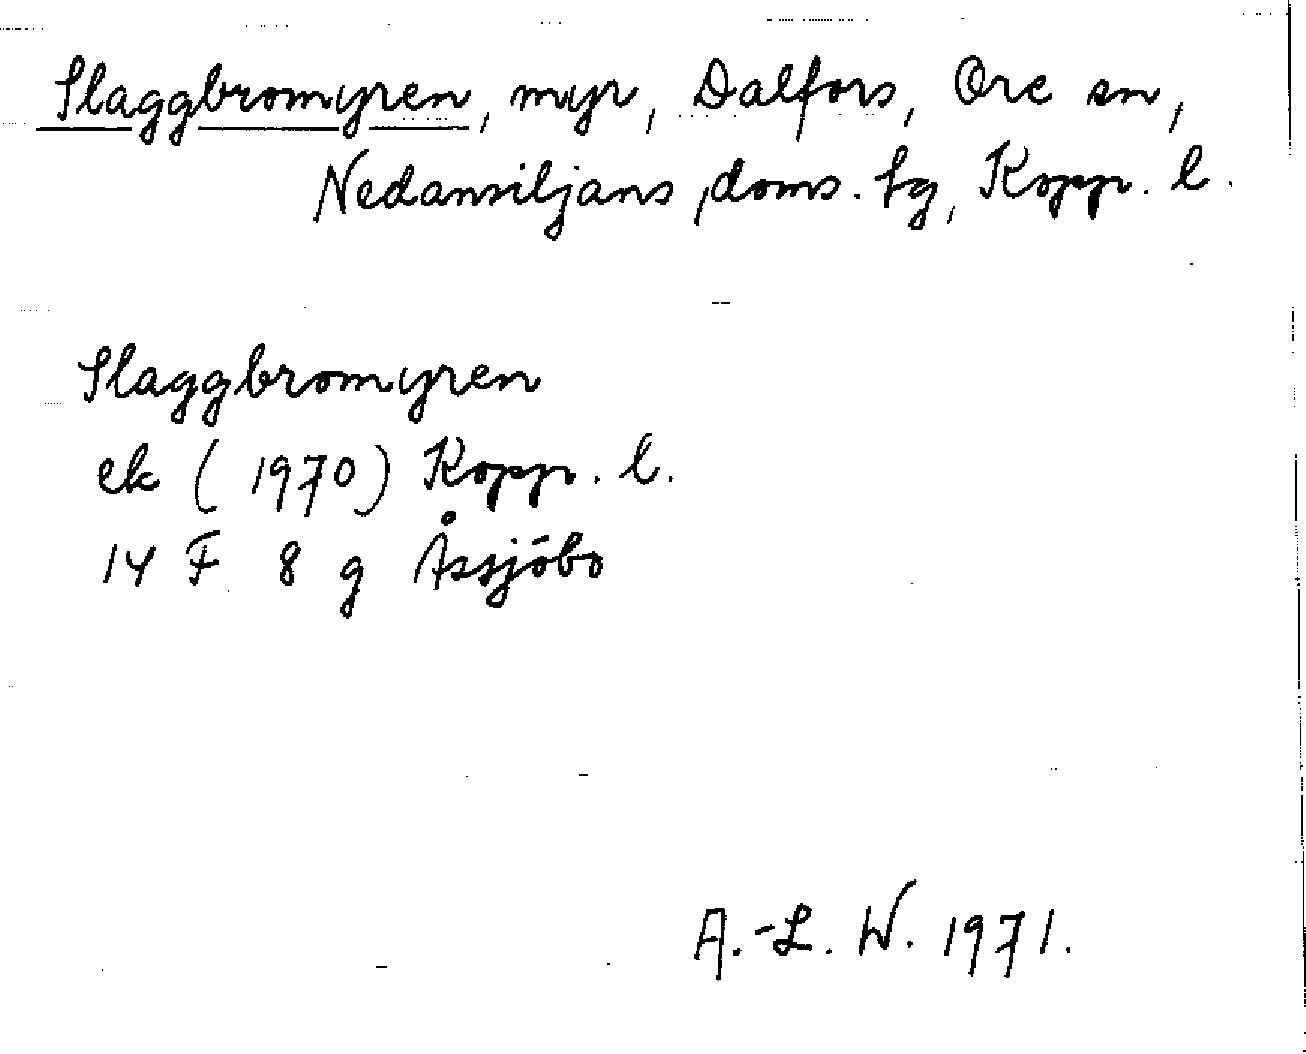 Slaggbromyren, myr, Dalfors, Ore sn,
Nedansiljans doms. tg, Kopp. l.
Slaggbromyren
ek (1970) Kopp. l.
14 F 8 g Åssjöbo
A.-L. W. 1971.